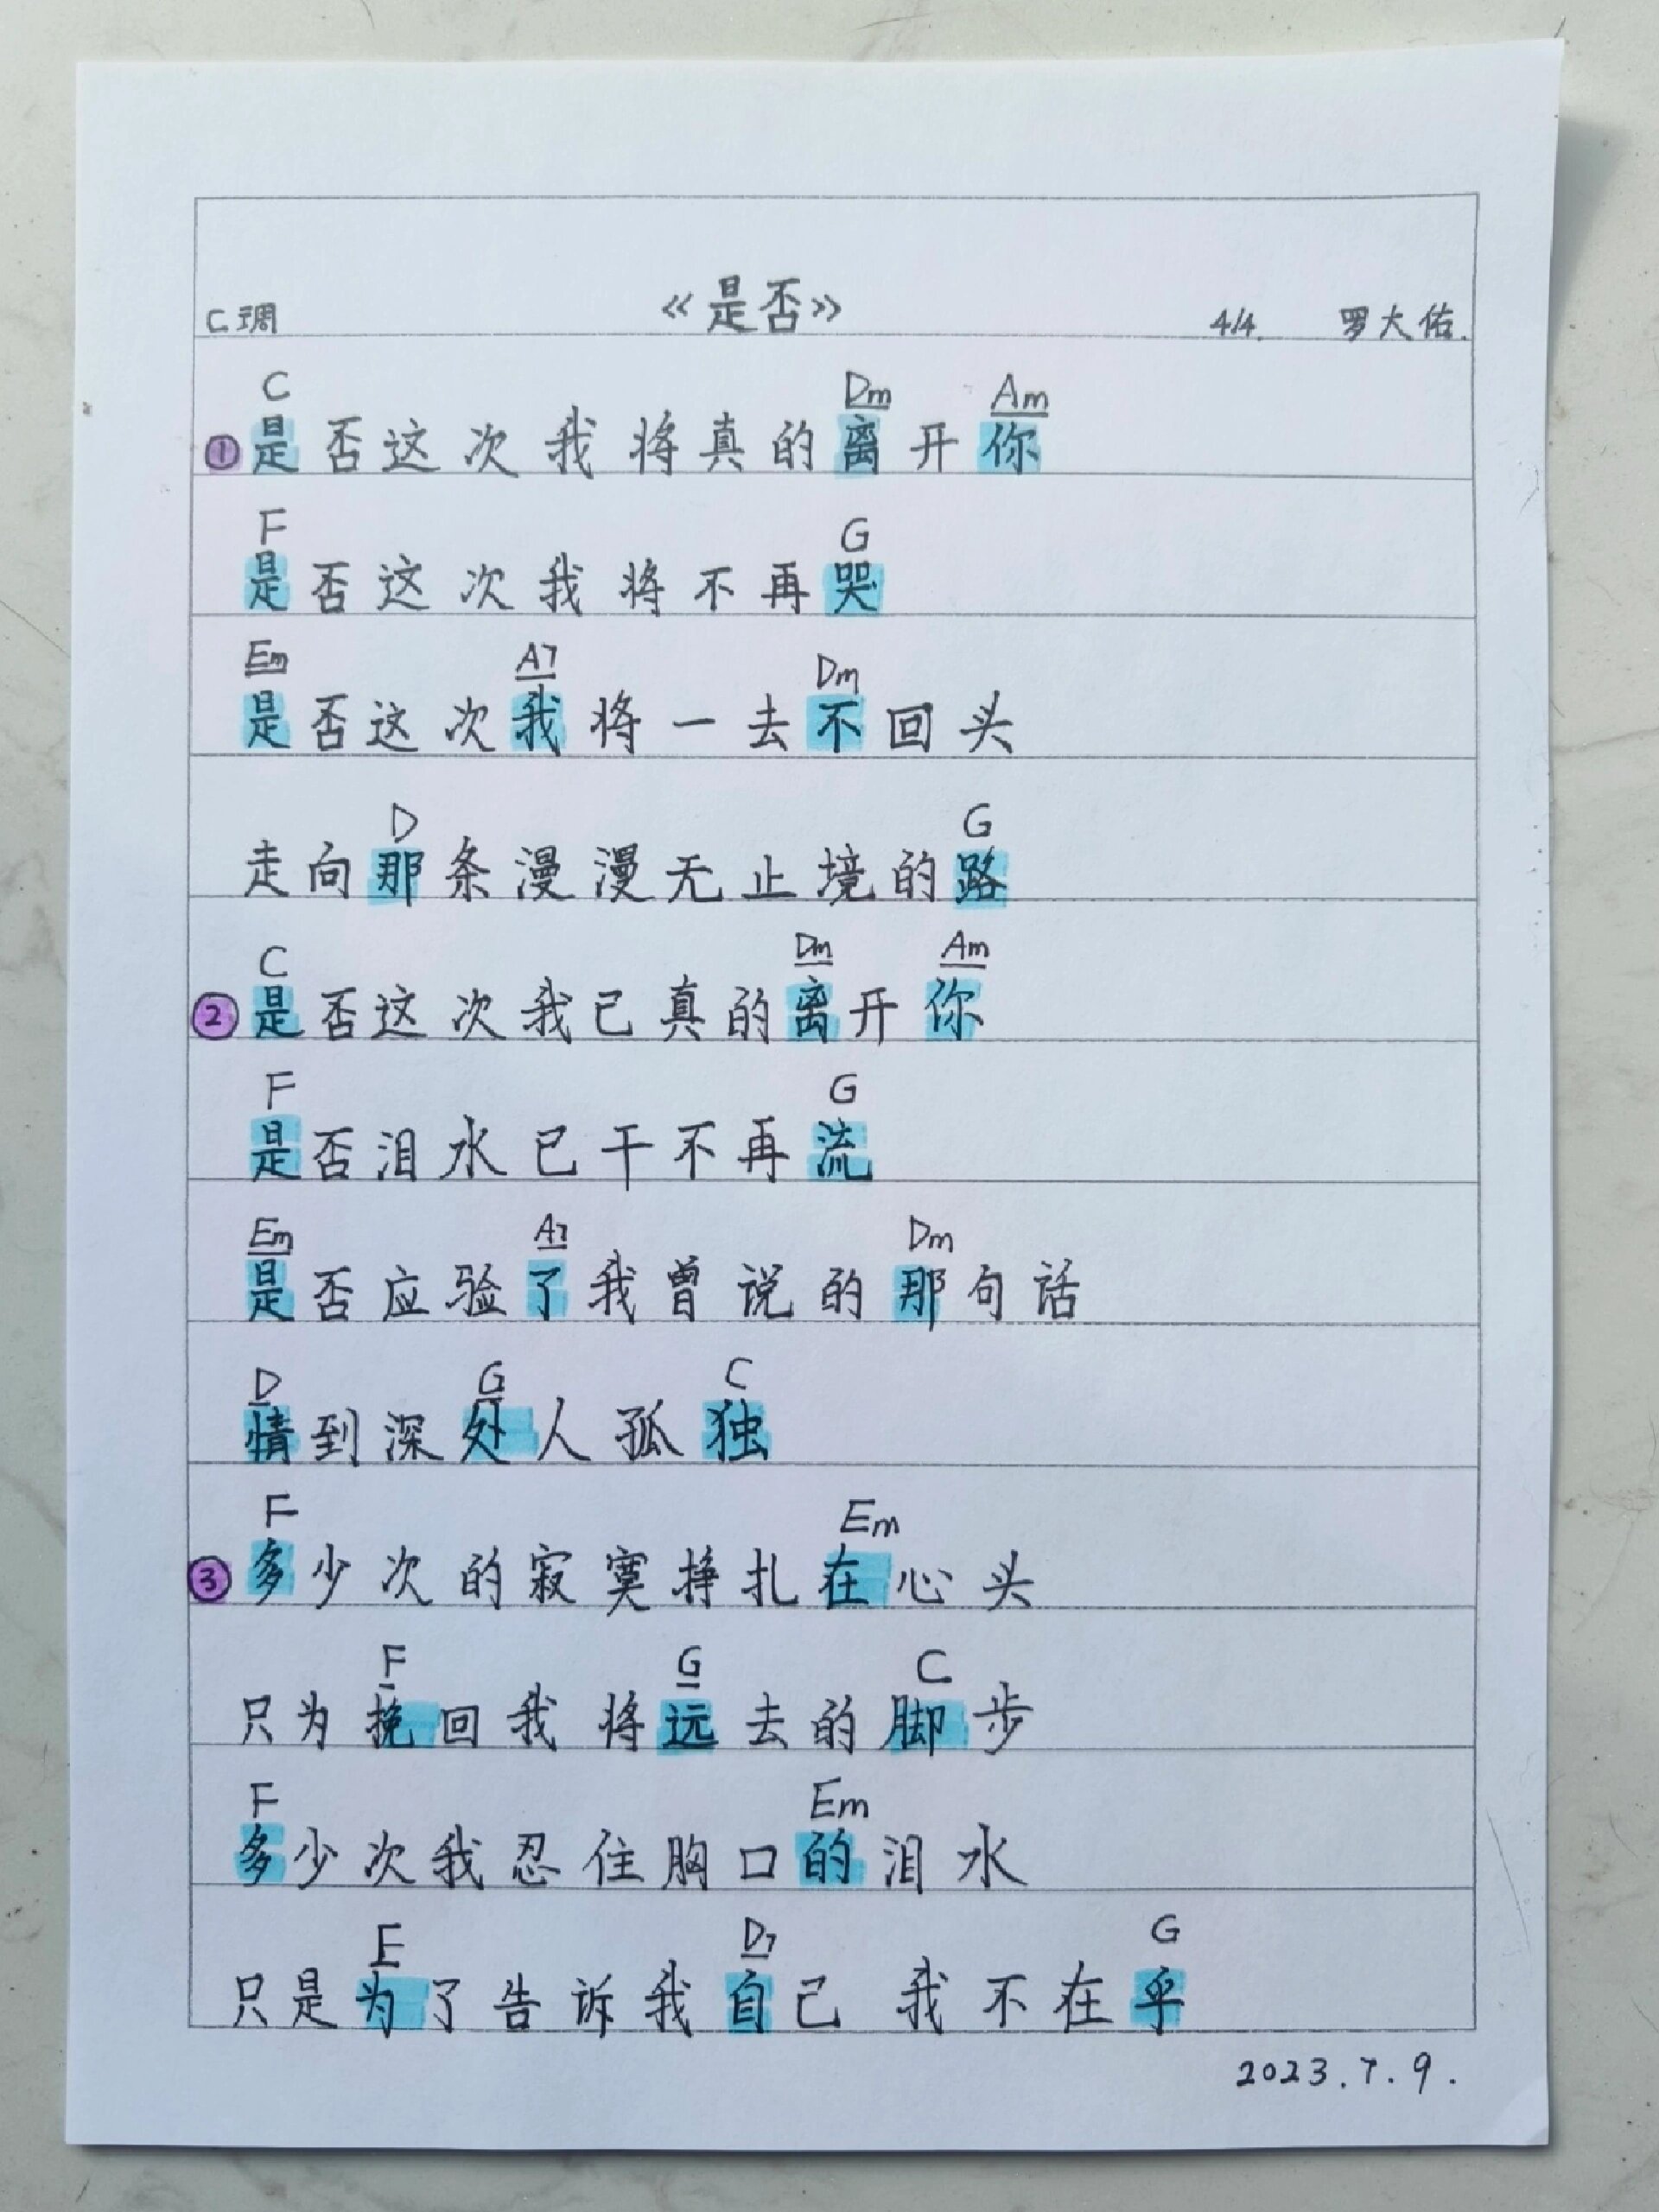 C调 《是否》 4/4. 罗大佑.
C Dm Am
① 是否这次我将真的离开你
F G
是否这次我将不再哭
Em A7 Dm
是否这次我将一去不回头
D G
走向那条漫漫无止境的路
C Dm Am
② 是否这次我已真的离开你
F G
是否泪水已干不再流
Em A7 Dm
是否应验了我曾说的那句话
D G C
情到深处人孤独
F Em
③ 多少次的寂寞挣扎在心头
F G C
只为挽回我将远去的脚步
F Em
多少次我忍住胸口的泪水
F D7 G
只是为了告诉我自己 我不在乎
2023.7.9.